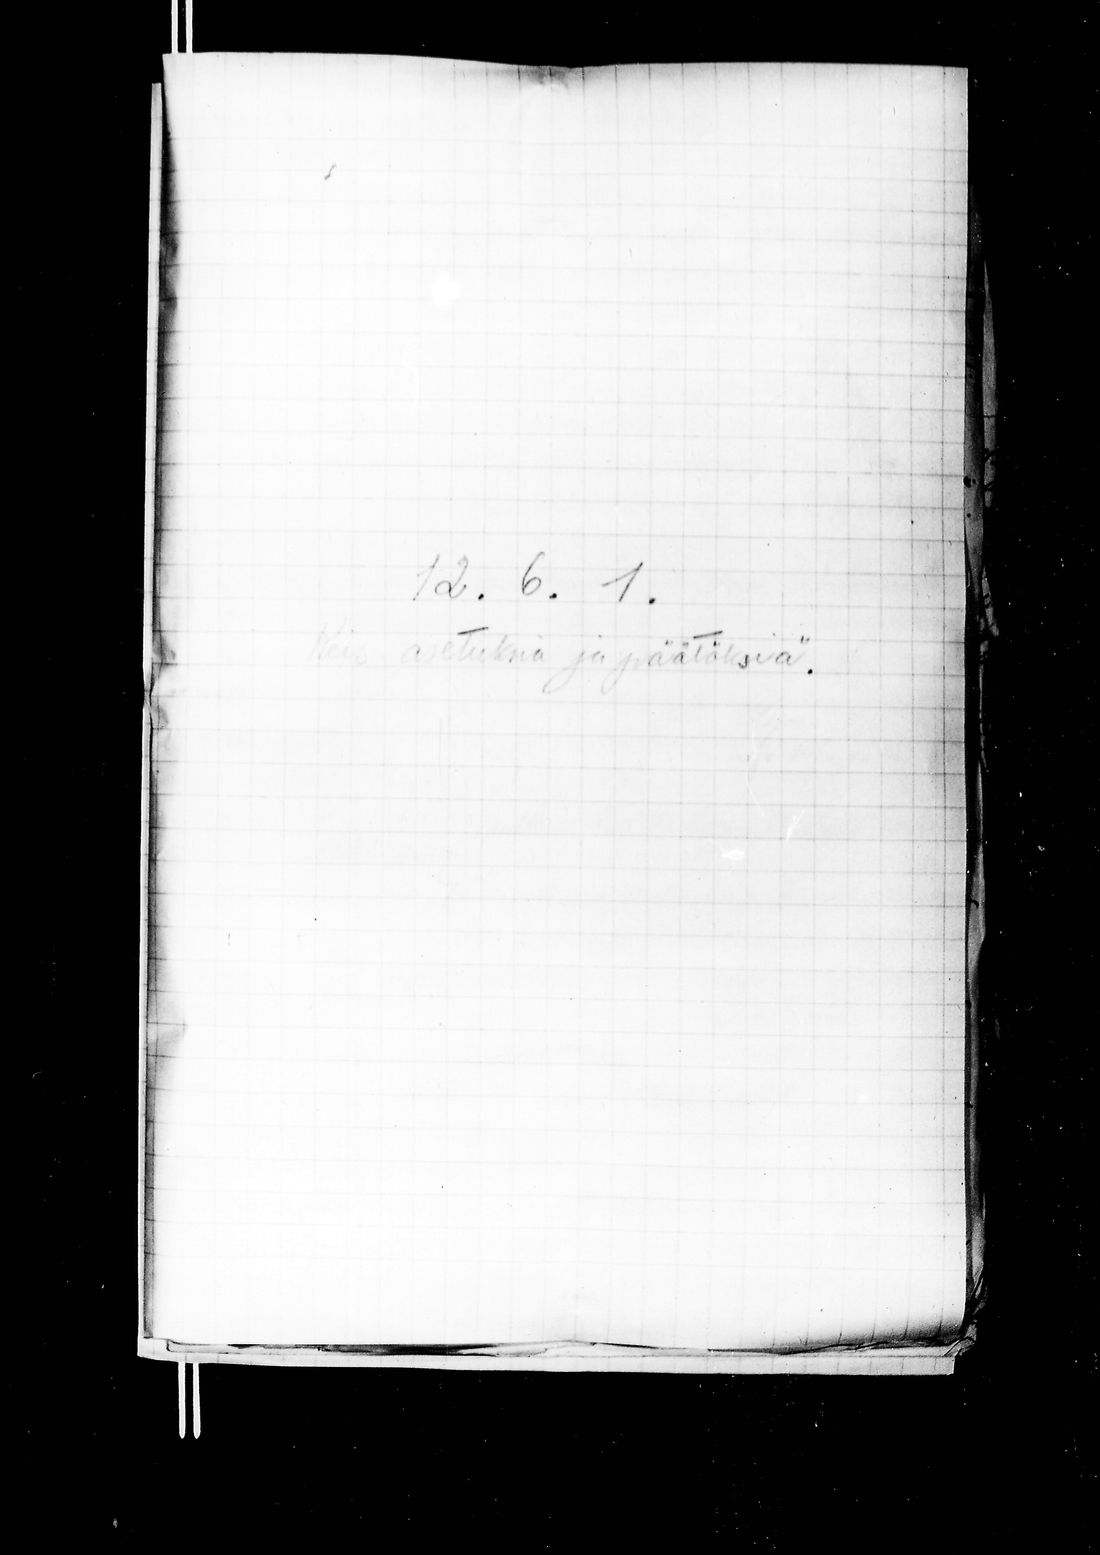 12. 6. 1.
Keis. asetuksia ja päätöksiä.